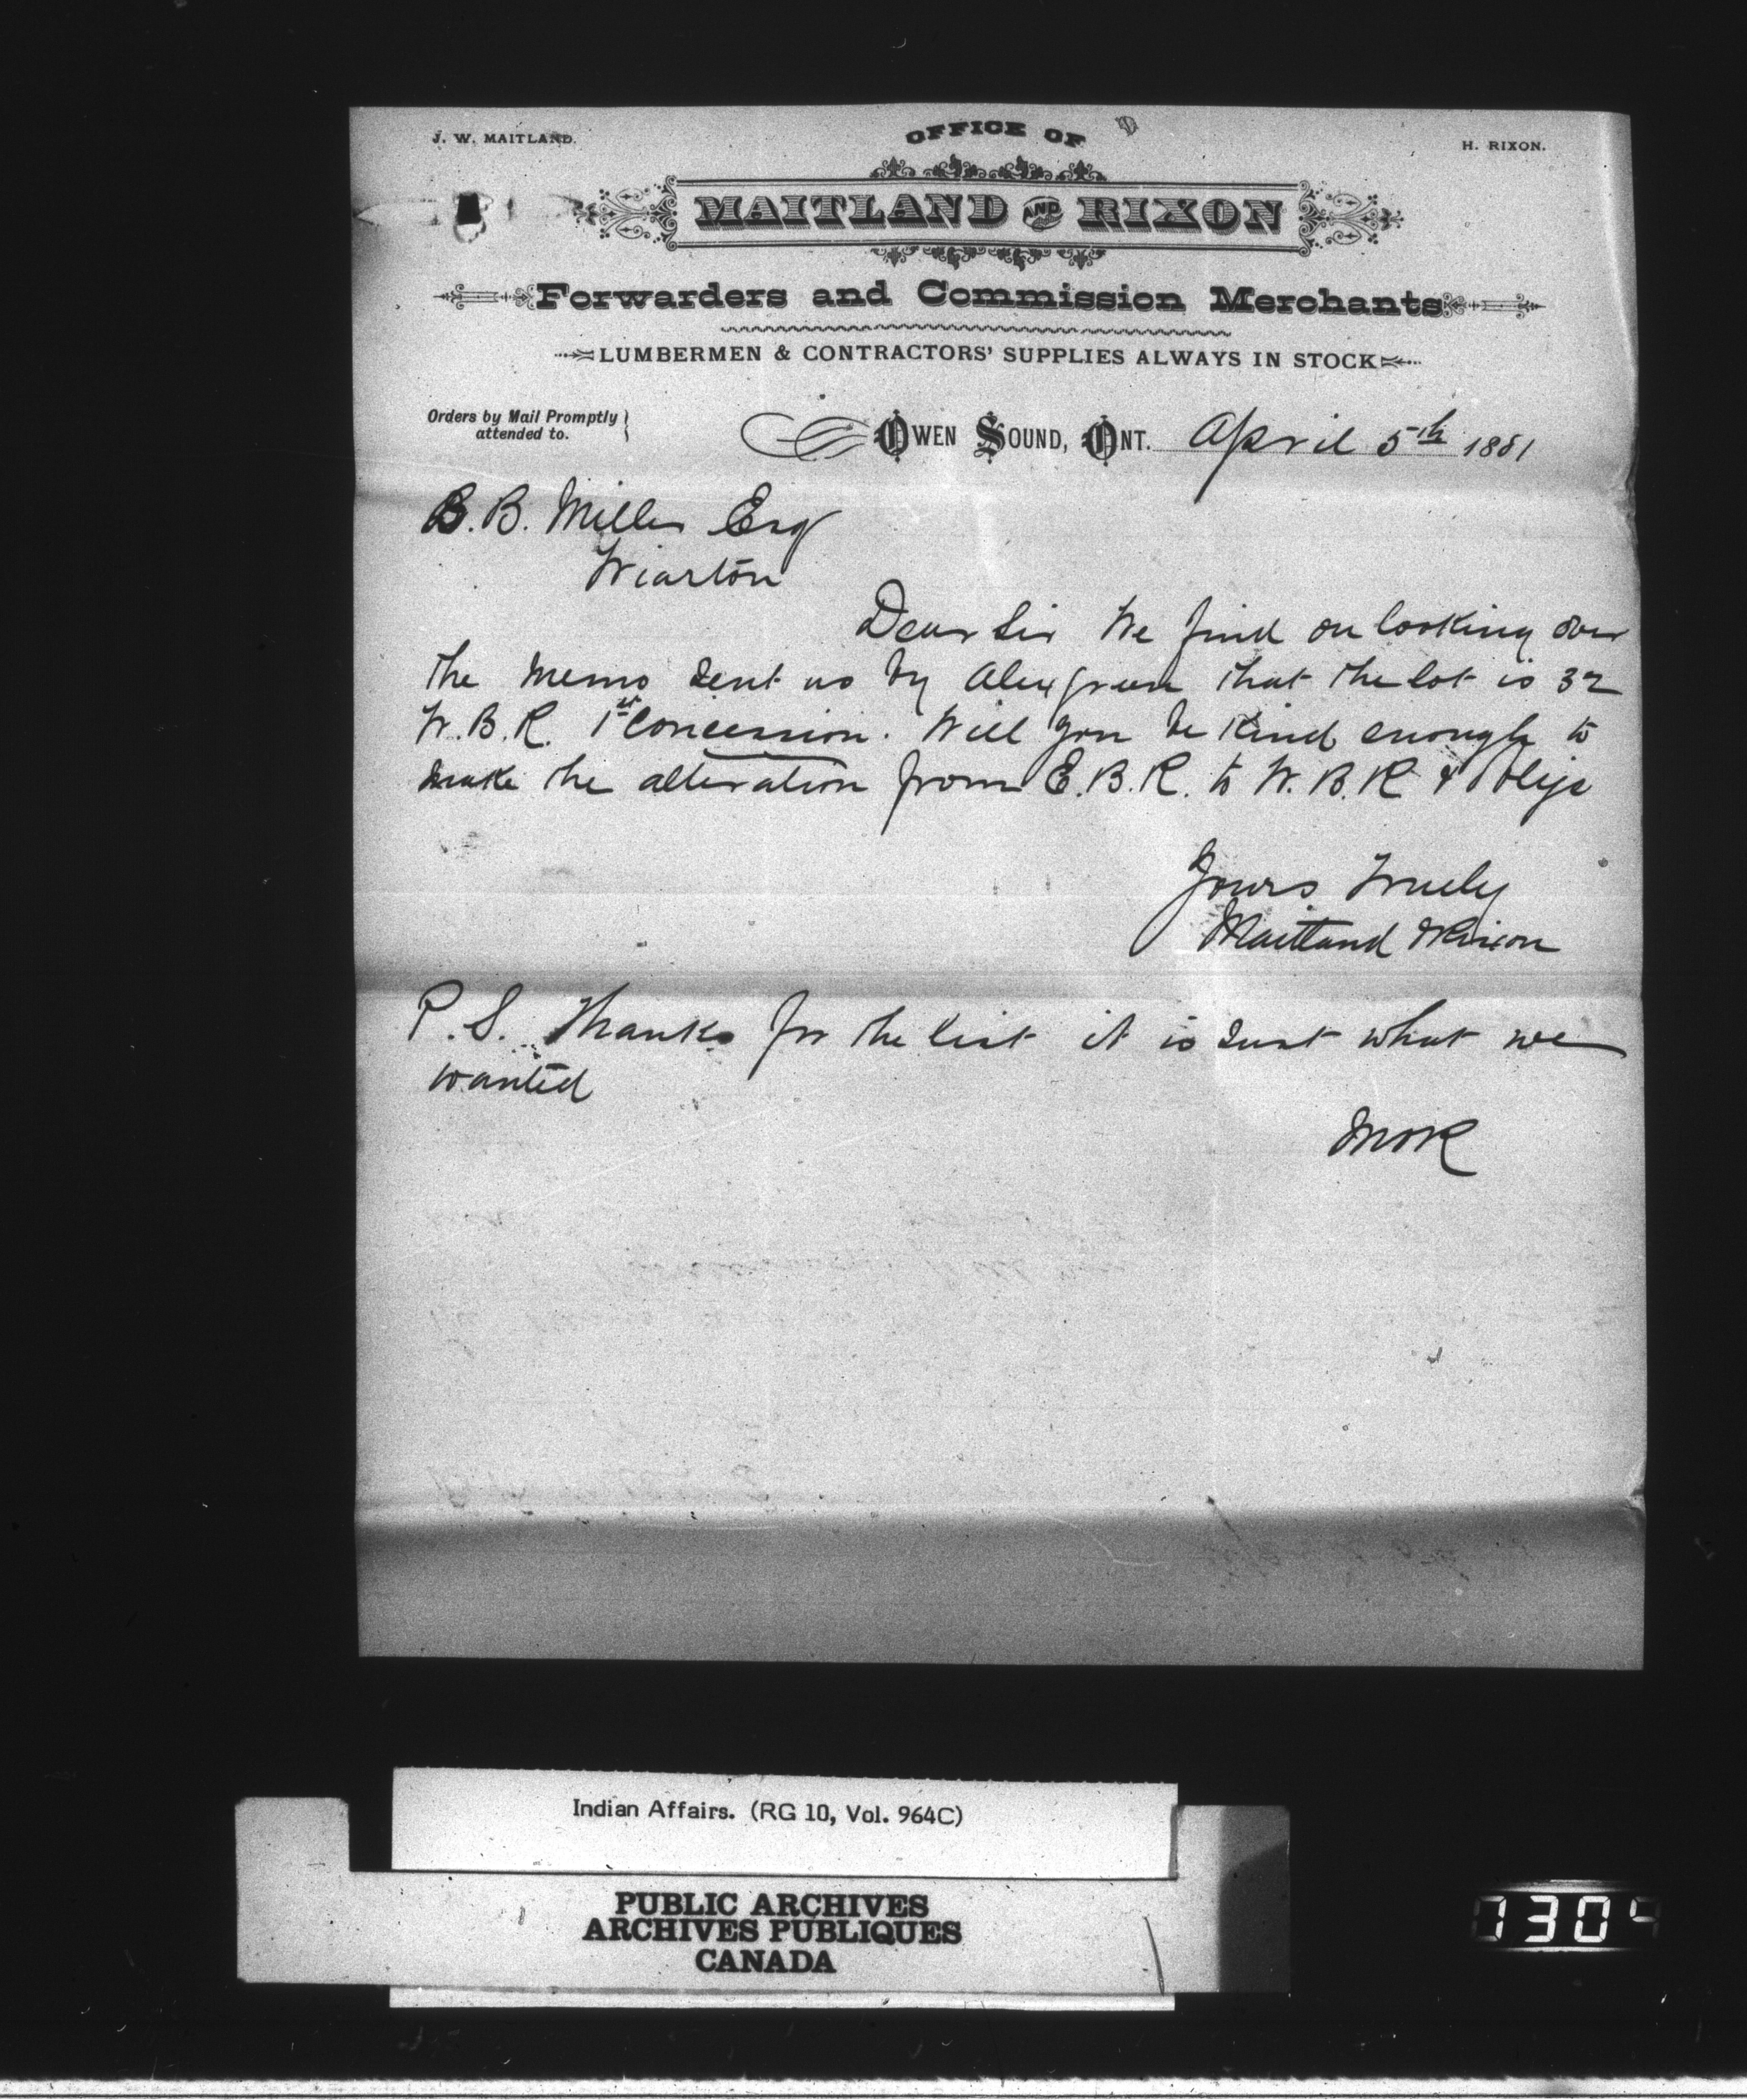 J. W. MAITLAND.
OFFICE OF
H. RIXON.
MAITLAND AND RIXON
Forwarders and Commission Merchants
LUMBERMEN & CONTRACTORS' SUPPLIES ALWAYS IN STOCK
Orders by Mail Promptly
attended to.
OWEN SOUND, ONT. April 5th 1881
B. B. Miller Esq
Wiarton
Dear Sir We find on looking over
the memo sent us by Alex that the lot is 32
W.B.R. 1st Concession. Will you be kind enough to
make the alteration from E.B.R. to W.B.R & oblige
Yours Truely
Maitland & Rixon
P.S. Thanks for the list it is just what we
wanted
M & R
Indian Affairs. (RG 10, Vol. 964C)
PUBLIC ARCHIVES
ARCHIVES PUBLIQUES
CANADA
1304